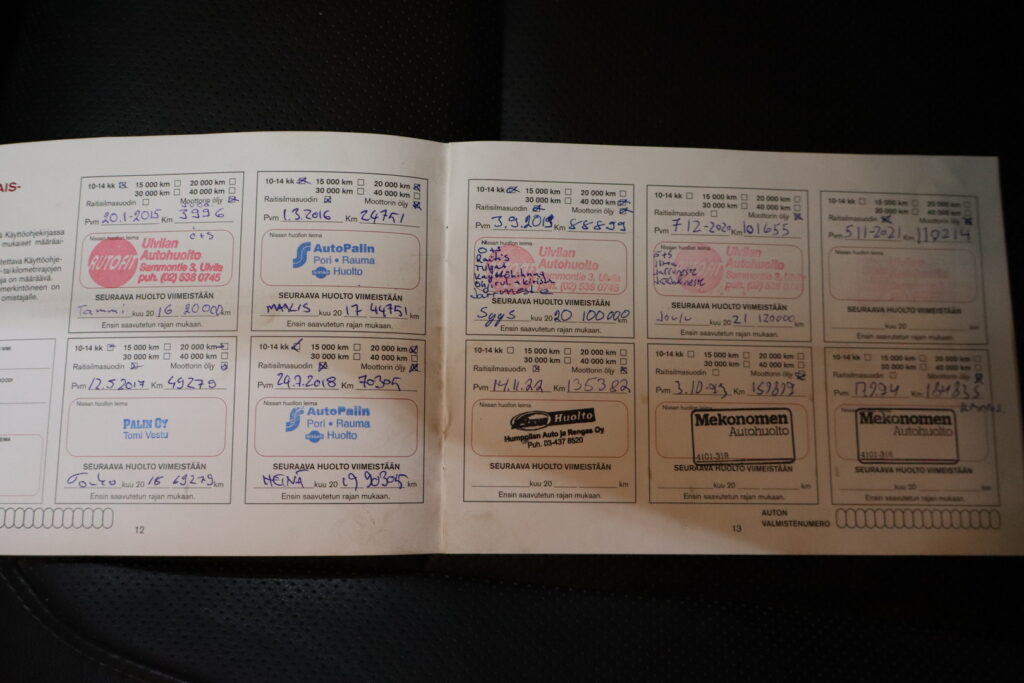 AIS-
s Käyttöohjekirjassa
mukaiset määräa-
tettava Käyttöohje-
-tai kilometrirajojen
ja on määräävä.
merkintöineen on
omistajalle.
10-14 kk 15 000 km 20 000 km
30 000 km 40 000 km
Raitisilmasuodin Moottorin öljy
Pvm 20.1-2015 Km 3996
Nissan huollon leima
O+S
AUTOFIT
Ulvilan
Autohuolto
Sammontie 3, Ulvila
puh. (02) 538 0745
SEURAAVA HUOLTO VIIMEISTÄÄN
Tammi kuu 20 16 20000 km
Ensin saavutetun rajan mukaan.
10-14 kk 15 000 km 20 000 km
30 000 km 40 000 km
Raitisilmasuodin Moottorin öljy
Pvm 1.3.2016 Km 24751
Nissan huollon leima
AutoPalin
Pori • Rauma
Huolto
SEURAAVA HUOLTO VIIMEISTÄÄN
MAALIS kuu 20 17 44751 km
Ensin saavutetun rajan mukaan.
10-14 kk 15 000 km 20 000 km
30 000 km 40 000 km
Raitisilmasuodin Moottorin öljy
Pvm 12.5.2017 Km 49279
Nissan huollon leima
PALIN OY
Tomi Vestu
SEURAAVA HUOLTO VIIMEISTÄÄN
kuu 20 18 69279 km
Ensin saavutetun rajan mukaan.
10-14 kk 15 000 km 20 000 km
30 000 km 40 000 km
Raitisilmasuodin Moottorin öljy
Pvm 24.7.2018 Km 70305
Nissan huollon leima
AutoPalin
Pori • Rauma
Huolto
SEURAAVA HUOLTO VIIMEISTÄÄN
HEINÄ kuu 20 19 90305 km
Ensin saavutetun rajan mukaan.
12
10-14 kk 15 000 km 20 000 km
30 000 km 40 000 km
Raitisilmasuodin Moottorin öljy
Pvm 3.9.2019 Km 88899
Nissan huollon leima
O+S
Ulvilan
Autohuolto
Sammontie 3, Ulvila
puh. (02) 538 0745
SEURAAVA HUOLTO VIIMEISTÄÄN
Syys kuu 20 20 100000 km
Ensin saavutetun rajan mukaan.
10-14 kk 15 000 km 20 000 km
30 000 km 40 000 km
Raitisilmasuodin Moottorin öljy
Pvm 7.12-2020 Km 101655
Nissan huollon leima
O+S
Ulvilan
Autohuolto
Sammontie 3, Ulvila
puh. (02) 538 0745
SEURAAVA HUOLTO VIIMEISTÄÄN
Joulu kuu 20 21 120000 km
Ensin saavutetun rajan mukaan.
10-14 kk 15 000 km 20 000 km
30 000 km 40 000 km
Raitisilmasuodin Moottorin öljy
Pvm 5.11-2021 Km 119214
Nissan huollon leima
SEURAAVA HUOLTO VIIMEISTÄÄN
kuu 20 km
Ensin saavutetun rajan mukaan.
10-14 kk 15 000 km 20 000 km
30 000 km 40 000 km
Raitisilmasuodin Moottorin öljy
Pvm 14.11.22 Km 135382
Nissan huollon leima
Huolto
Humppilan Auto ja Rengas Oy
Puh. 03-437 8520
SEURAAVA HUOLTO VIIMEISTÄÄN
kuu 20 km
Ensin saavutetun rajan mukaan.
10-14 kk 15 000 km 20 000 km
30 000 km 40 000 km
Raitisilmasuodin Moottorin öljy
Pvm Km
Nissan huollon leima
Mekonomen
Autohuolto
4101-318
SEURAAVA HUOLTO VIIMEISTÄÄN
kuu 20 km
Ensin saavutetun rajan mukaan.
10-14 kk 15 000 km 20 000 km
30 000 km 40 000 km
Raitisilmasuodin Moottorin öljy
Pvm Km
Mekonomen
Autohuolto
4101-318
SEURAAVA HUOLTO VIIMEISTÄÄN
kuu 20 km
Ensin saavutetun rajan mukaan.
13
AUTON
VALMISTENUMERO